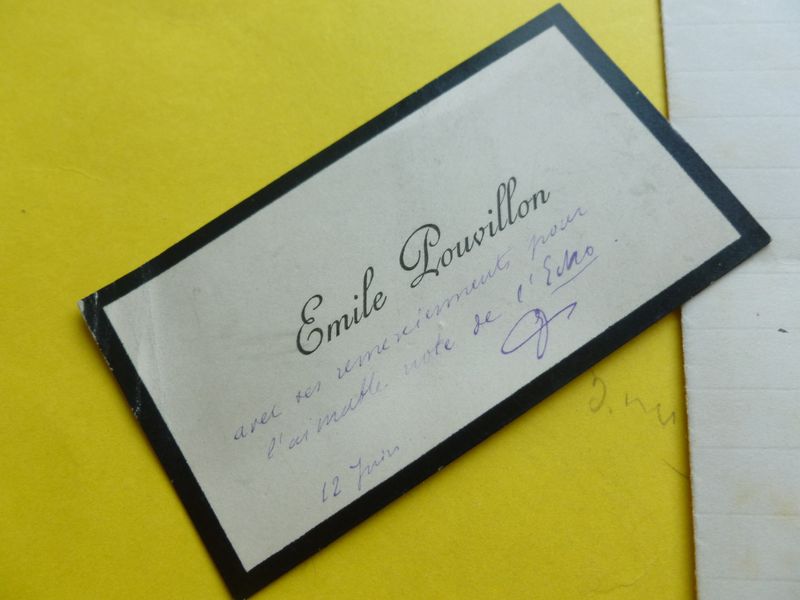 Emile Pouvillon
avec ses remerciements pour
l'aimable note de l'Echo.
12 Juin